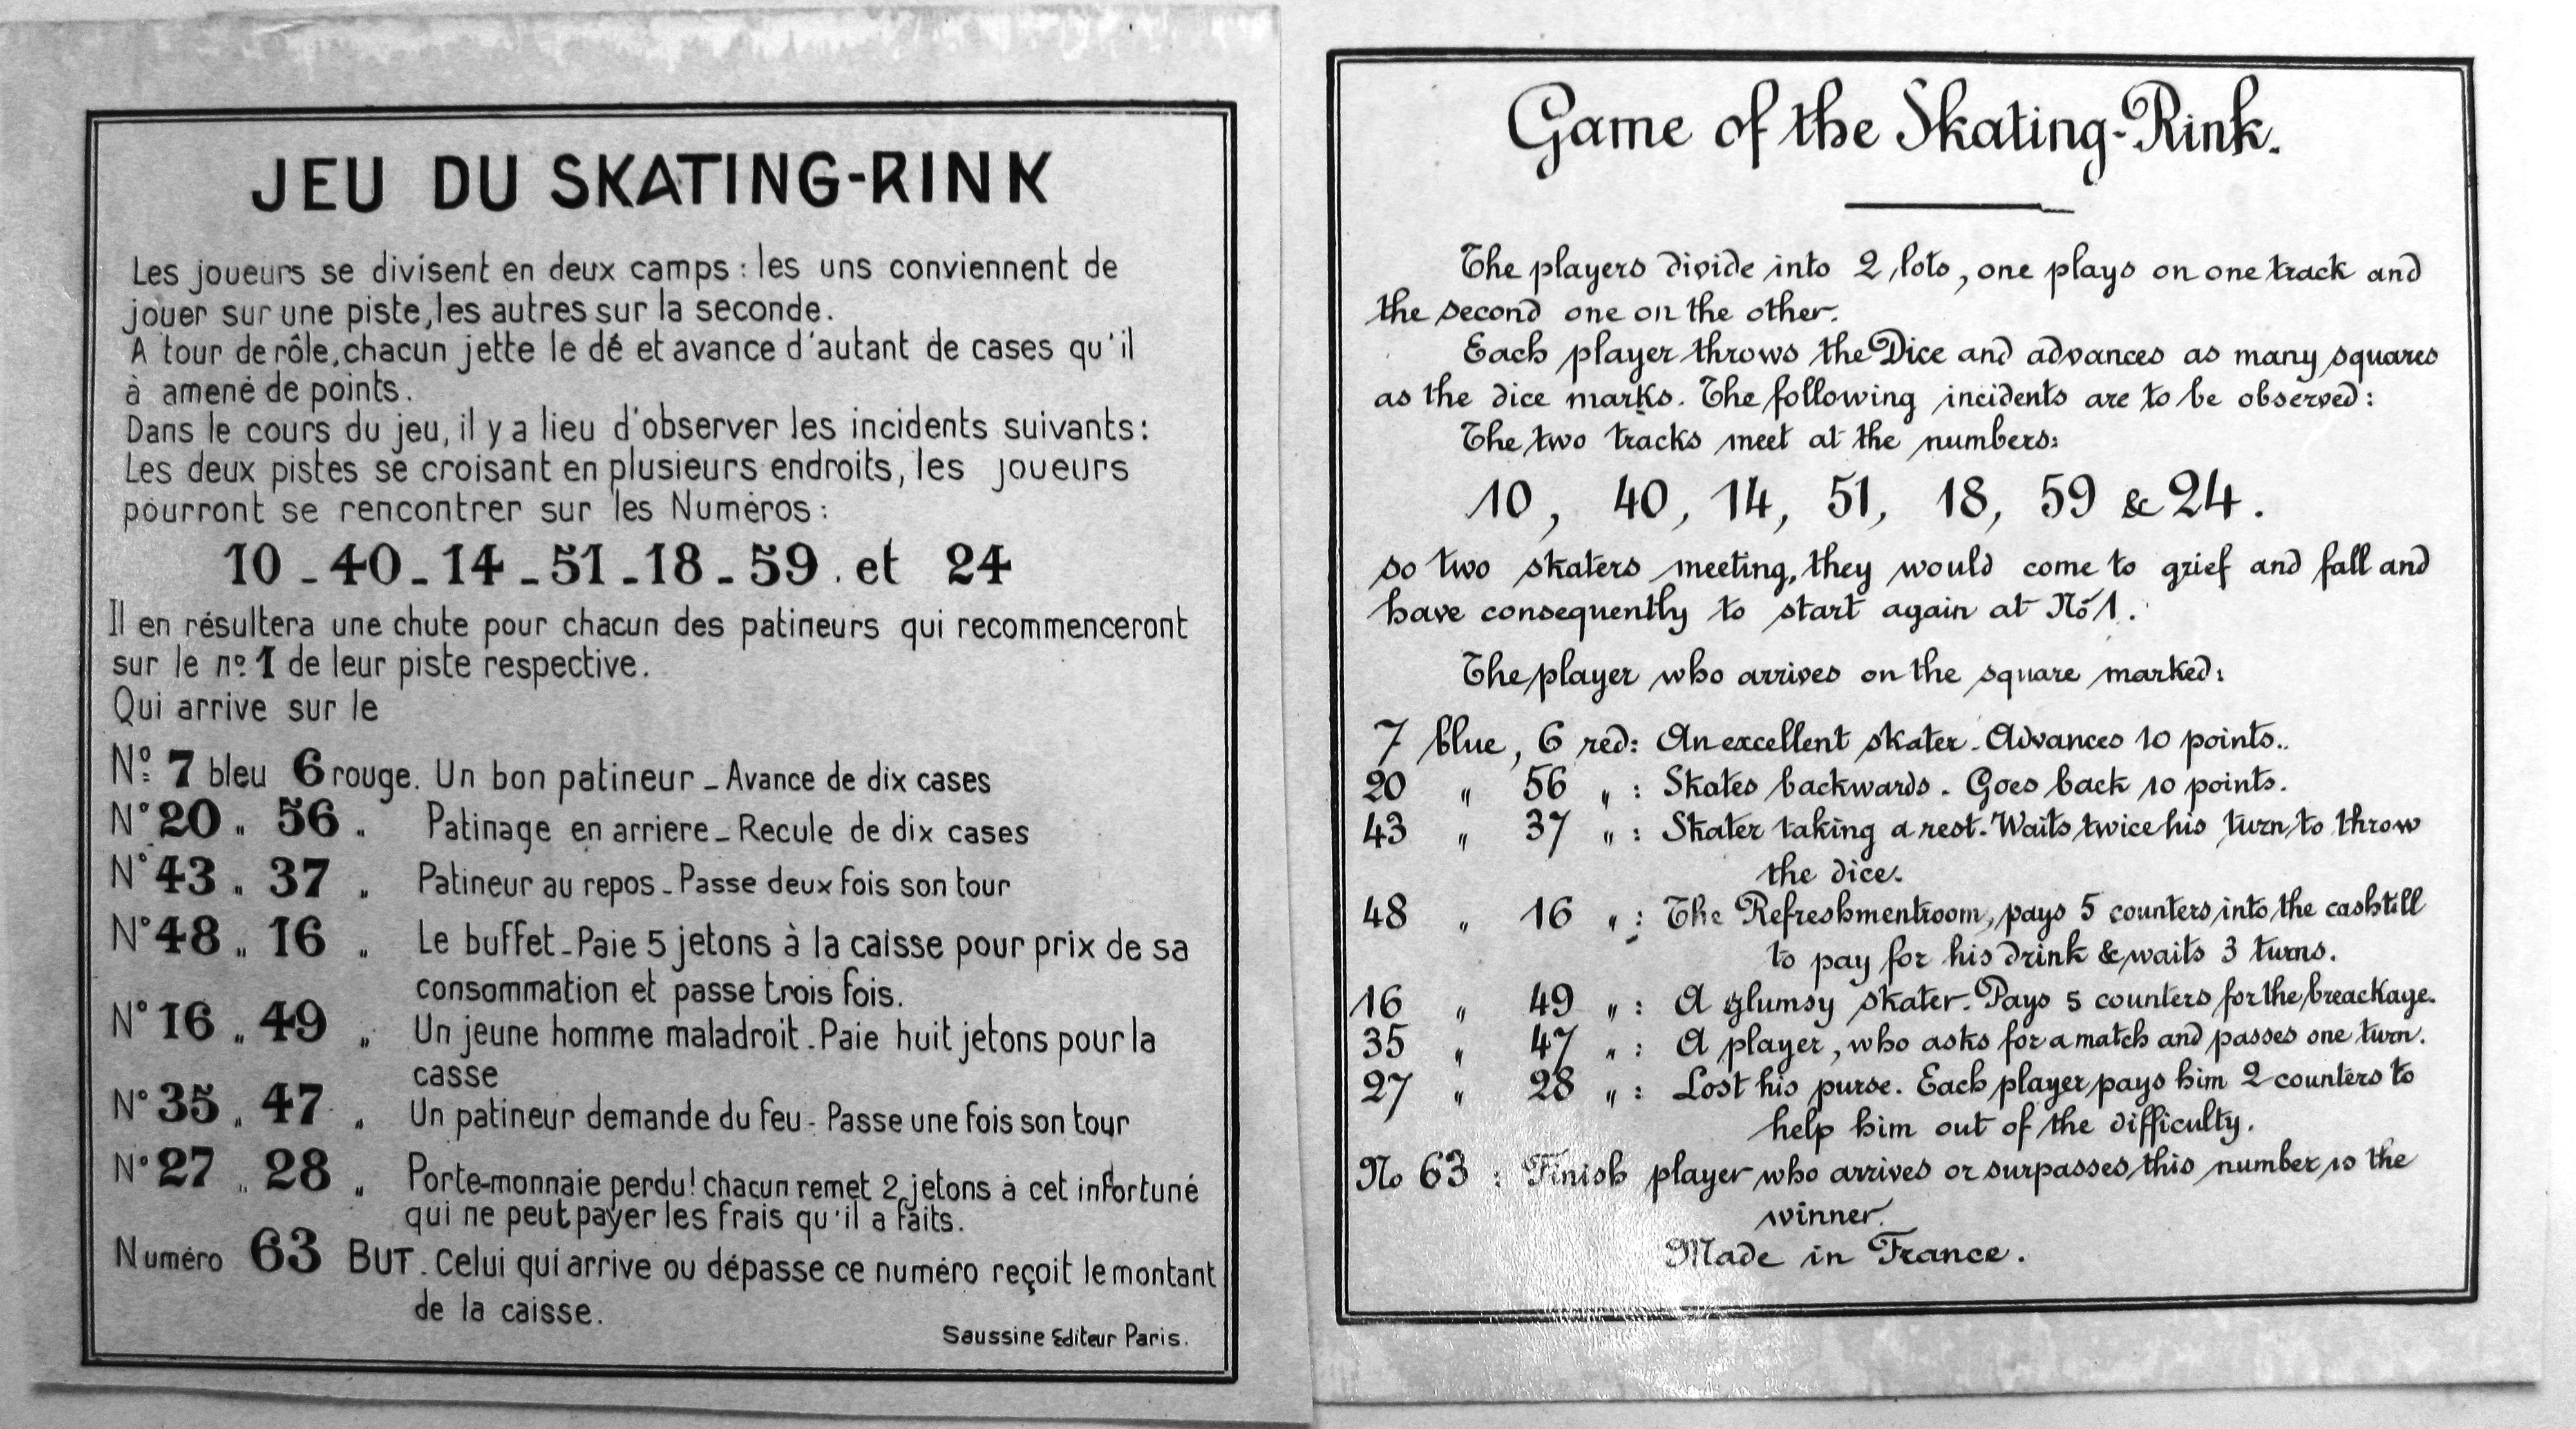 JEU DU SKATING-RINK
Les joueurs se divisent en deux camps : les uns conviennent de
jouer sur une piste, les autres sur la seconde.
A tour de rôle, chacun jette le dé et avance d'autant de cases qu'il
à amené de points.
Dans le cours du jeu, il y a lieu d'observer les incidents suivants :
Les deux pistes se croisant en plusieurs endroits, les joueurs
pourront se rencontrer sur les Numéros :
10 - 40 - 14 - 51 - 18 - 59 . et 24
Il en résultera une chute pour chacun des patineurs qui recommenceront
sur le nº 1 de leur piste respective.
Qui arrive sur le
Nº 7 bleu 6 rouge. Un bon patineur - Avance de dix cases
N° 20 " 56 " Patinage en arriere - Recule de dix cases
N° 43 " 37 " Patineur au repos - Passe deux fois son tour
N° 48 " 16 " Le buffet - Paie 5 jetons à la caisse pour prix de sa
consommation et passe trois fois.
N° 16 " 49 " Un jeune homme maladroit - Paie huit jetons pour la
casse
N° 35 " 47 " Un patineur demande du feu - Passe une fois son tour
N° 27 " 28 " Porte-monnaie perdu! chacun remet 2 jetons à cet infortuné
qui ne peut payer les frais qu'il a faits.
Numéro 63 BUT. Celui qui arrive ou dépasse ce numéro reçoit le montant
de la caisse.
Saussine Editeur Paris.
Game of the Skating-Rink.
The players divide into 2 lots, one plays on one track and
the second one on the other.
Each player throws the Dice and advances as many squares
as the dice marks. The following incidents are to be observed :
The two tracks meet at the numbers:
10, 40, 14, 51, 18, 59 & 24.
so two skaters meeting, they would come to grief and fall and
have consequently to start again at Nº 1.
The player who arrives on the square marked:
7 blue, 6 red: An excellent skater. Advances 10 points..
20 " 56 " : Skates backwards. Goes back 10 points.
43 " 37 " : Skater taking a rest. Waits twice his turn to throw
the dice.
48 " 16 " : The Refreshmentroom, pays 5 counters into the cashtill
to pay for his drink & waits 3 turns.
16 " 49 " : A glumsy skater. Pays 5 counters for the breackage.
35 " 47 " : A player, who asks for a match and passes one turn.
27 " 28 " : Lost his purse. Each player pays him 2 counters to
help him out of the difficulty.
No 63 : Finish player who arrives or surpasses this number is the
winner.
Made in France.